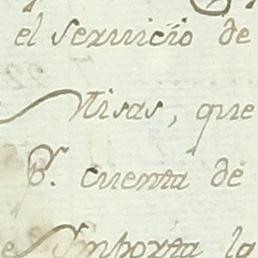 el servicio de
Misas, que
P.r cuenta de
Importa la